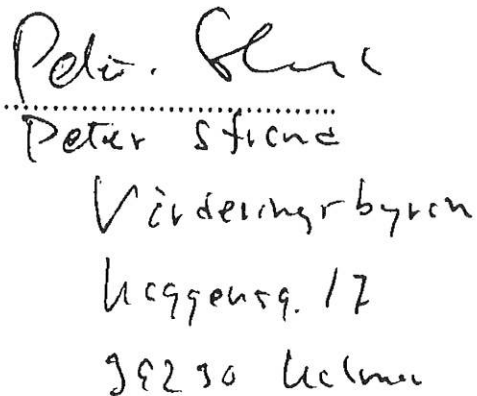 Peter
Peter Strand
Värderingsbyrån
Kaggensg. 17
39230 Kalmar